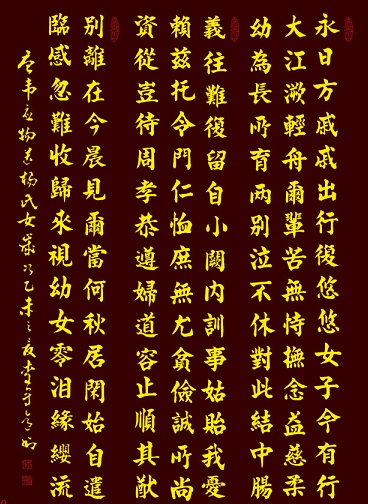 永日方戚戚出行復悠悠女子今有行
大江溯輕舟爾輩苦無恃撫念益慈柔
幼為長所育兩别泣不休對此結中腸
義往難復留自小闕內訓事姑貽我憂
賴茲托令門仁恤庶無尤貧儉誠所尚
資從豈待周孝恭遵婦道容止順其猷
别離在今晨見爾當何秋居閑始自遣
臨感忽難收歸來視幼女零泪緣纓流
韋应物送楊氏女歲次乙未之夏